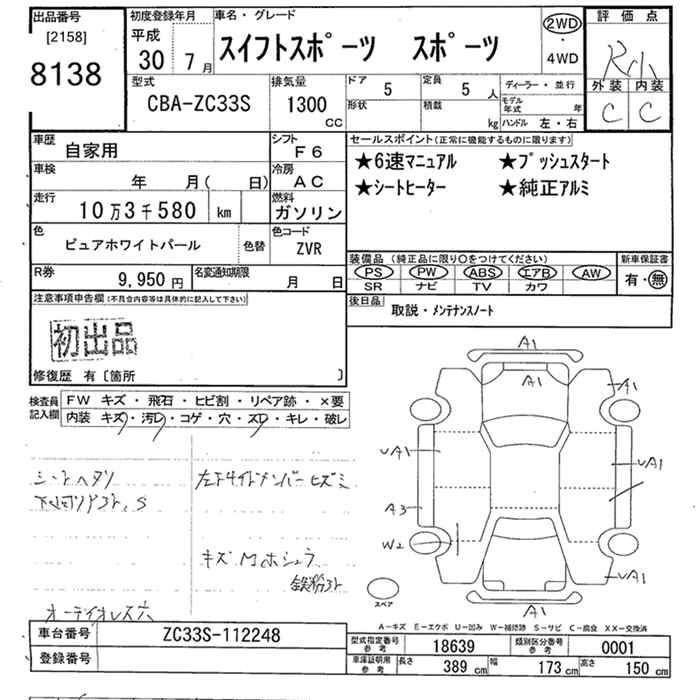 出品番号
[2158]
8138
初度登録年月
平成
30 7月
車名・グレード
スイフトスポーツ スポーツ
2WD
・
4WD
評価点
外装 内装
C C
型式
CBA-ZC33S
排気量
1300
CC
ドア 5
形状
定員 5人
積載 kg
ディーラー・並行
モデル年式 年
ハンドル 左・右
車歴 自家用
シフト F6
車検 年 月( 日)
冷房 AC
走行 10万3千580 km
燃料 ガソリン
色 ピュアホワイトパール 色替
色コード ZVR
R券 9,950円
名変通知期限 月 日
セールスポイント(正常に機能するものに限ります)
★6速マニュアル ★プッシュスタート
★シートヒーター ★純正アルミ
装備品(純正品に限り○をつけてください)
PS PW ABS エアB AW
SR ナビ TV カワ
新車保証書
有・無
後日品 取説・メンテナンスノート
注意事項申告欄(不具合内容等は具体的に記入して下さい)
初出品
修復歴 有〔箇所 〕
検査員記入欄
FW キズ・飛石・ヒビ割・リペア跡・×要
内装 キズ・汚レ・コゲ・穴・スレ・キレ・破レ
シートヘタリ
下回りサビ、S
左下サイドメンバーヒズミ
キズ
オーディオレス穴
A1
A1
A1
UA1
UA1
A3
W2
UA1
A1
スペア
A-キズ E-エクボ U-凹み W-補修跡 S-サビ C-腐食 XX-交換済
車台番号 ZC33S-112248
登録番号
型式指定番号 参考 18639
類別区分番号 参考 0001
車庫証明用 参考 長さ 389cm 幅 173cm 高さ 150cm